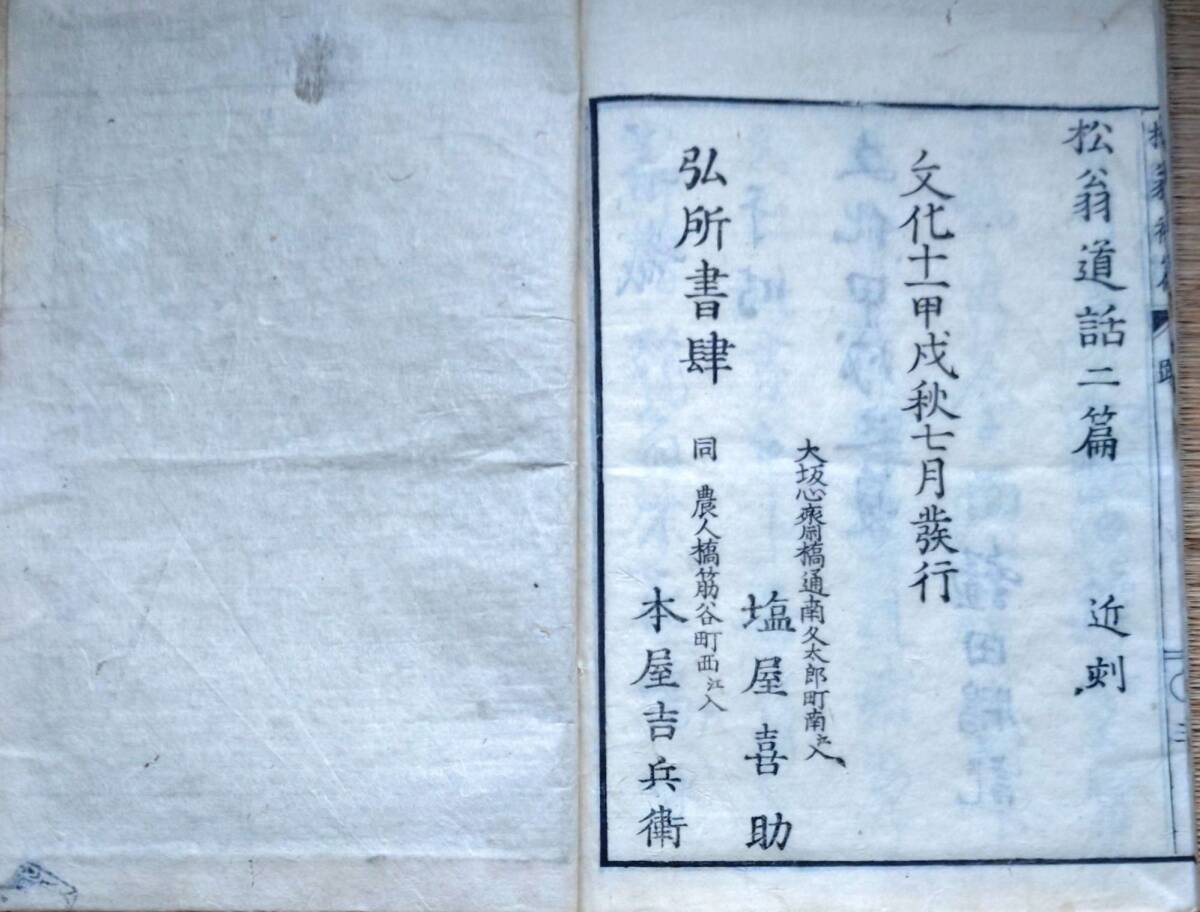 松翁道話二篇　近刻
文化十一甲戌秋七月発行
弘所書肆
大坂心齋橋通南久太郎町南江入
塩屋喜助
同　農人橋筋谷町西江入
本屋吉兵衛